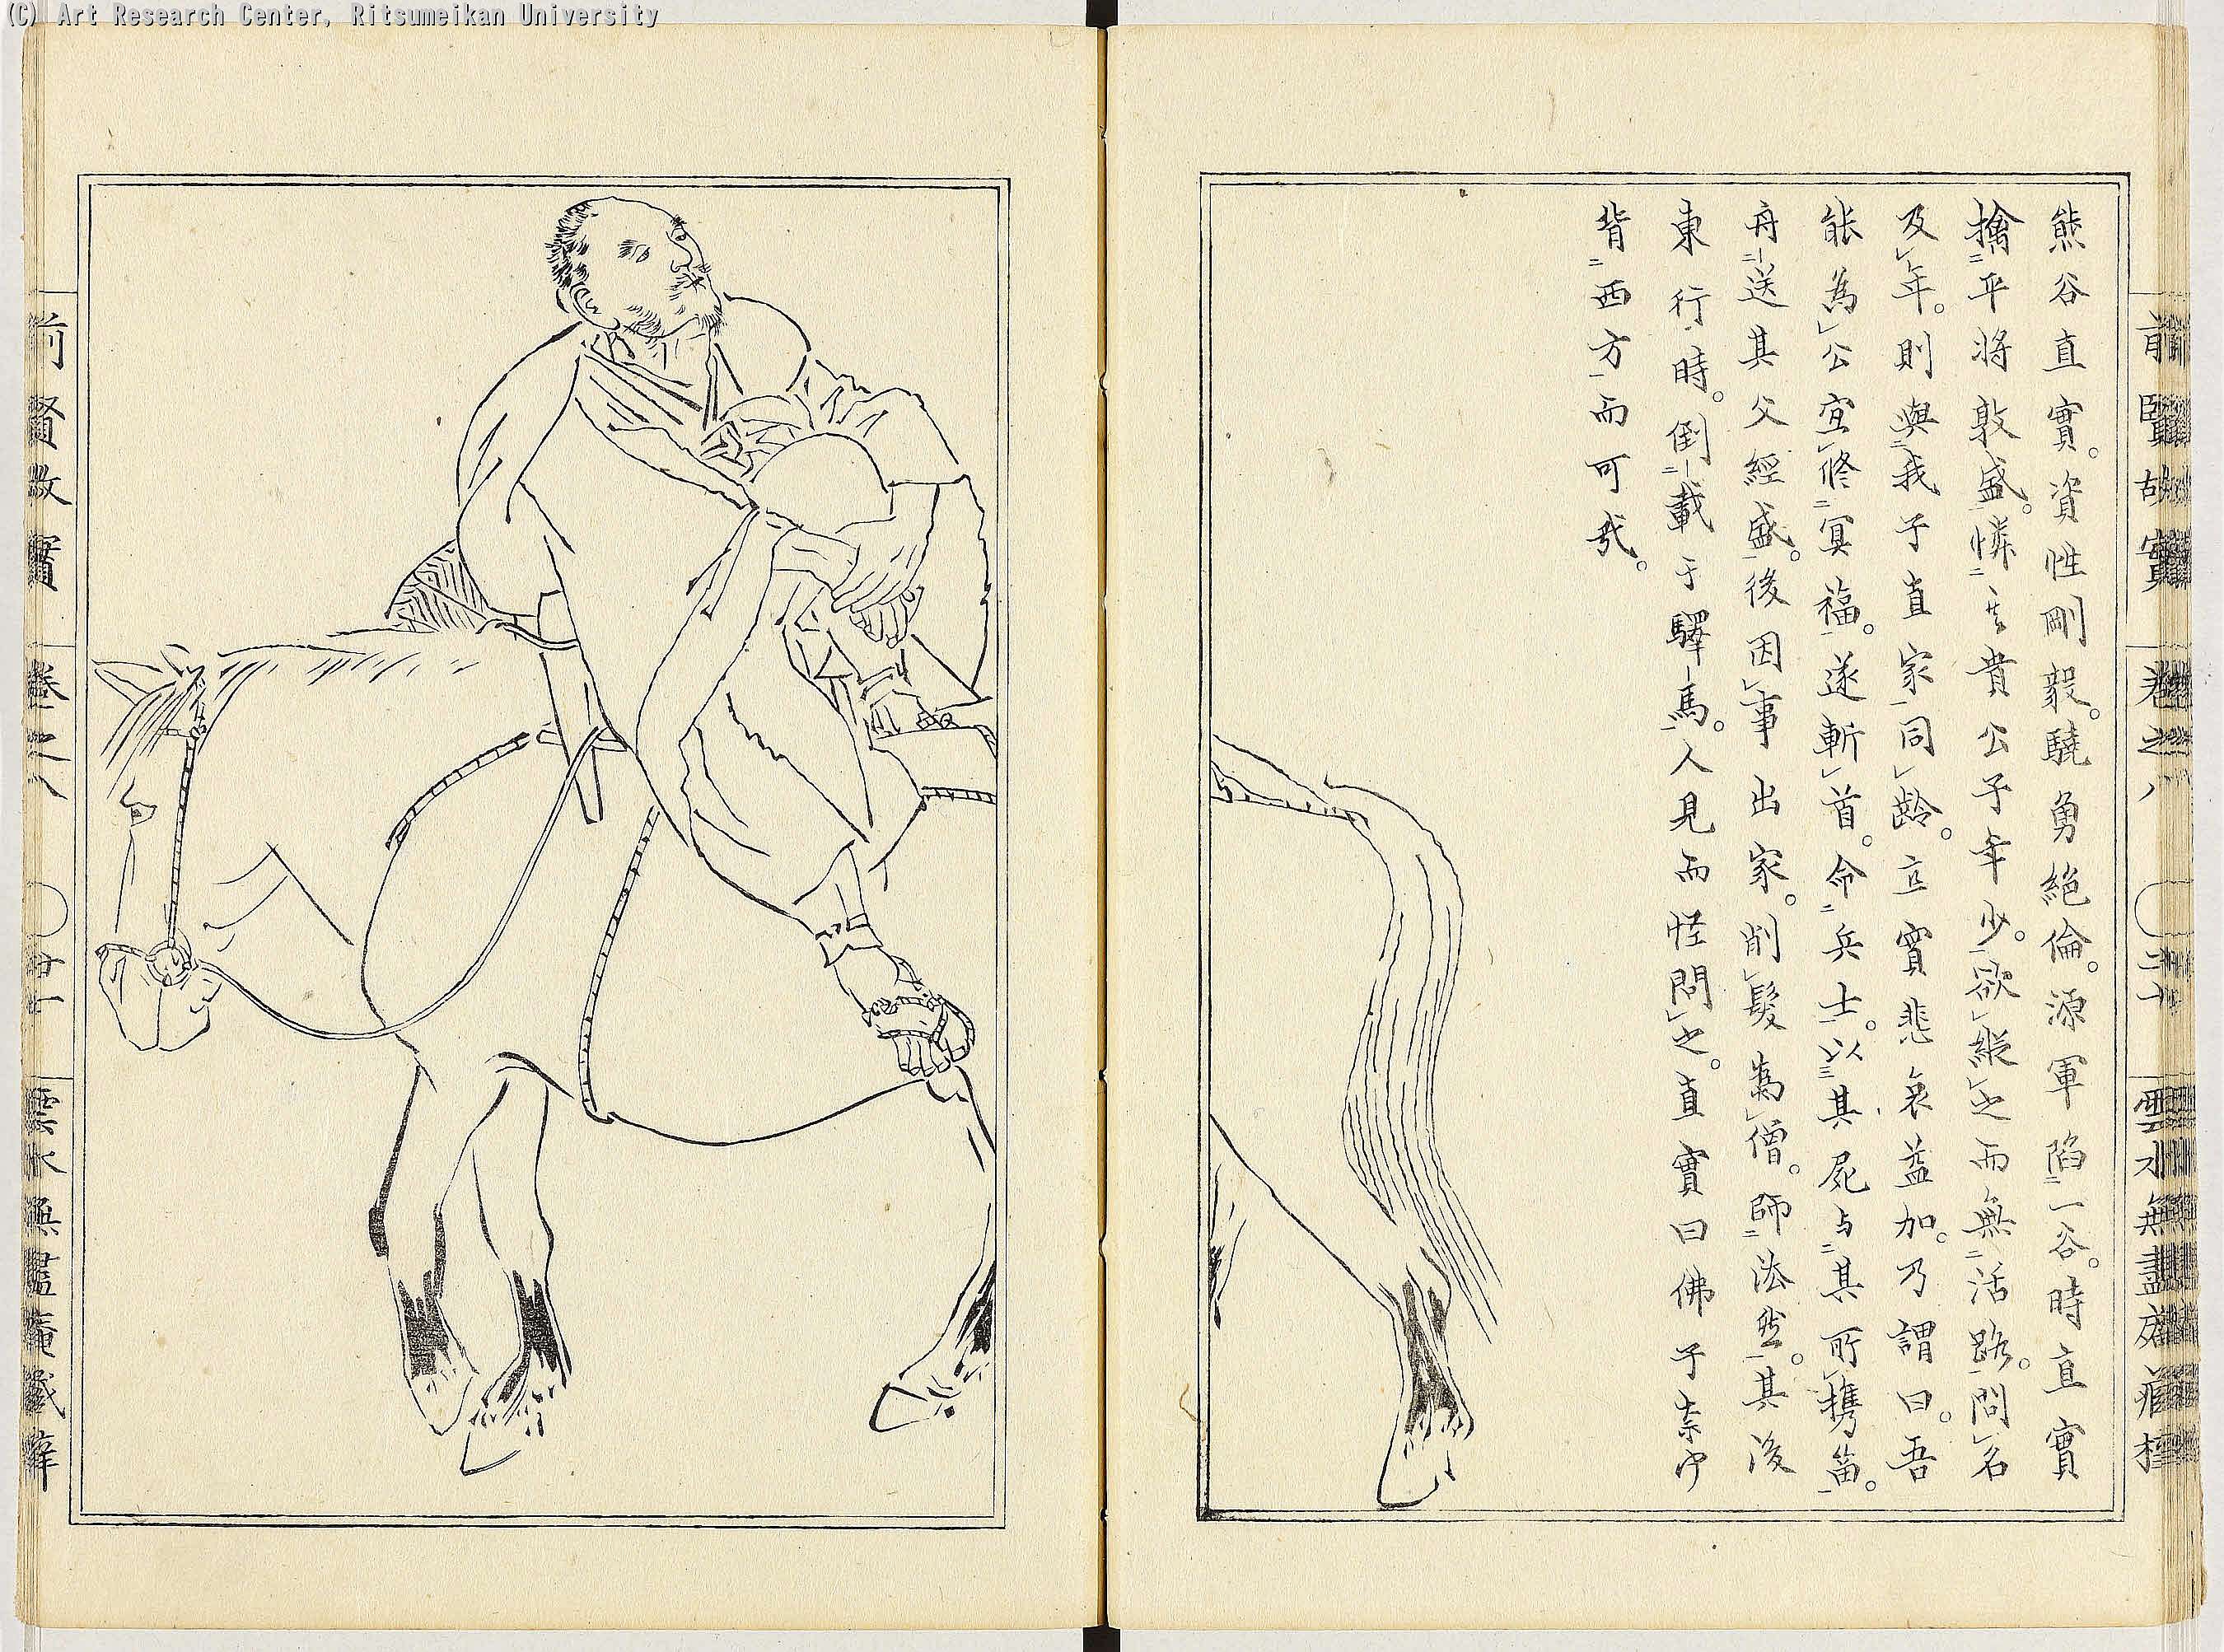 (C) Art Research Center, Ritsumeikan University
前賢故實 卷之八 二十 雲水無盡庵藏梓
熊谷直實。資性剛毅。驍勇絕倫。源軍陷二一谷。時直實
擒二平將敦盛。憐二其貴公子年少。欲縱之而無二活路。問名
及年。則與二我子直家一同齡。直實悲哀益加。乃謂曰。吾
能為公宜修二冥福。遂斬首。命二兵士。以三其屍与二其所携笛。
舟二送其父經盛。後因事出家。削髮為僧。師二法然。其後
東行時。倒二載于驛馬。人見而怪問之。直實曰佛子柰何
背二西方一而可哉。
前賢故實 卷之八 廿一 雲水無盡庵藏梓